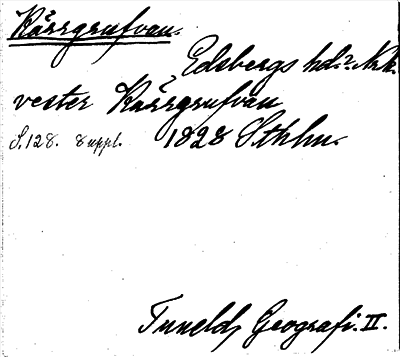 Kärrgrufvan.
Edsbergs hd. Nrk.
vester Kärrgrufvan
S. 128. Suppl. 1828 Sthlm.
Tuneld, Geografi. II.